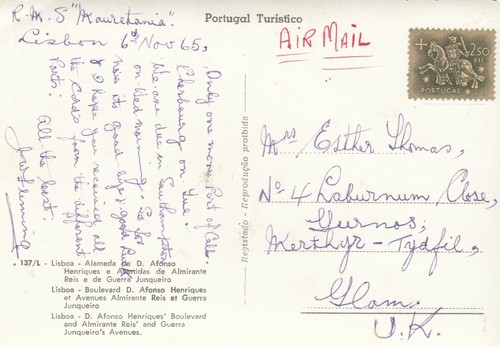 R.M.S "Mauretania".
Lisbon 6th Nov 65,
Only one more Port of Call.
Cherbourg on Tue!
We are due in Southampton
on Wed morning - so for
now its good bye & good luck
& I hope you receiving all
the Cards from the different
Ports.
All the best
J W Fleming
Portugal Turístico
AIR MAIL
2$50
PORTUGAL
Mrs Esther Thomas,
No 4 Laburnum Close,
Gurnos,
Merthyr-Tydfil,
Glam.
U.K.
Registado - Reprodução proibida
137/L - Lisboa - Alameda de D. Afonso
Henriques e Avenidas de Almirante
Reis e de Guerra Junqueiro
Lisboa - Boulevard D. Afonso Henriques
et Avenues Almirante Reis et Guerra
Junqueiro
Lisboa - D. Afonso Henriques' Boulevard
and Almirante Reis' and Guerra
Junqueiro's Avenues.